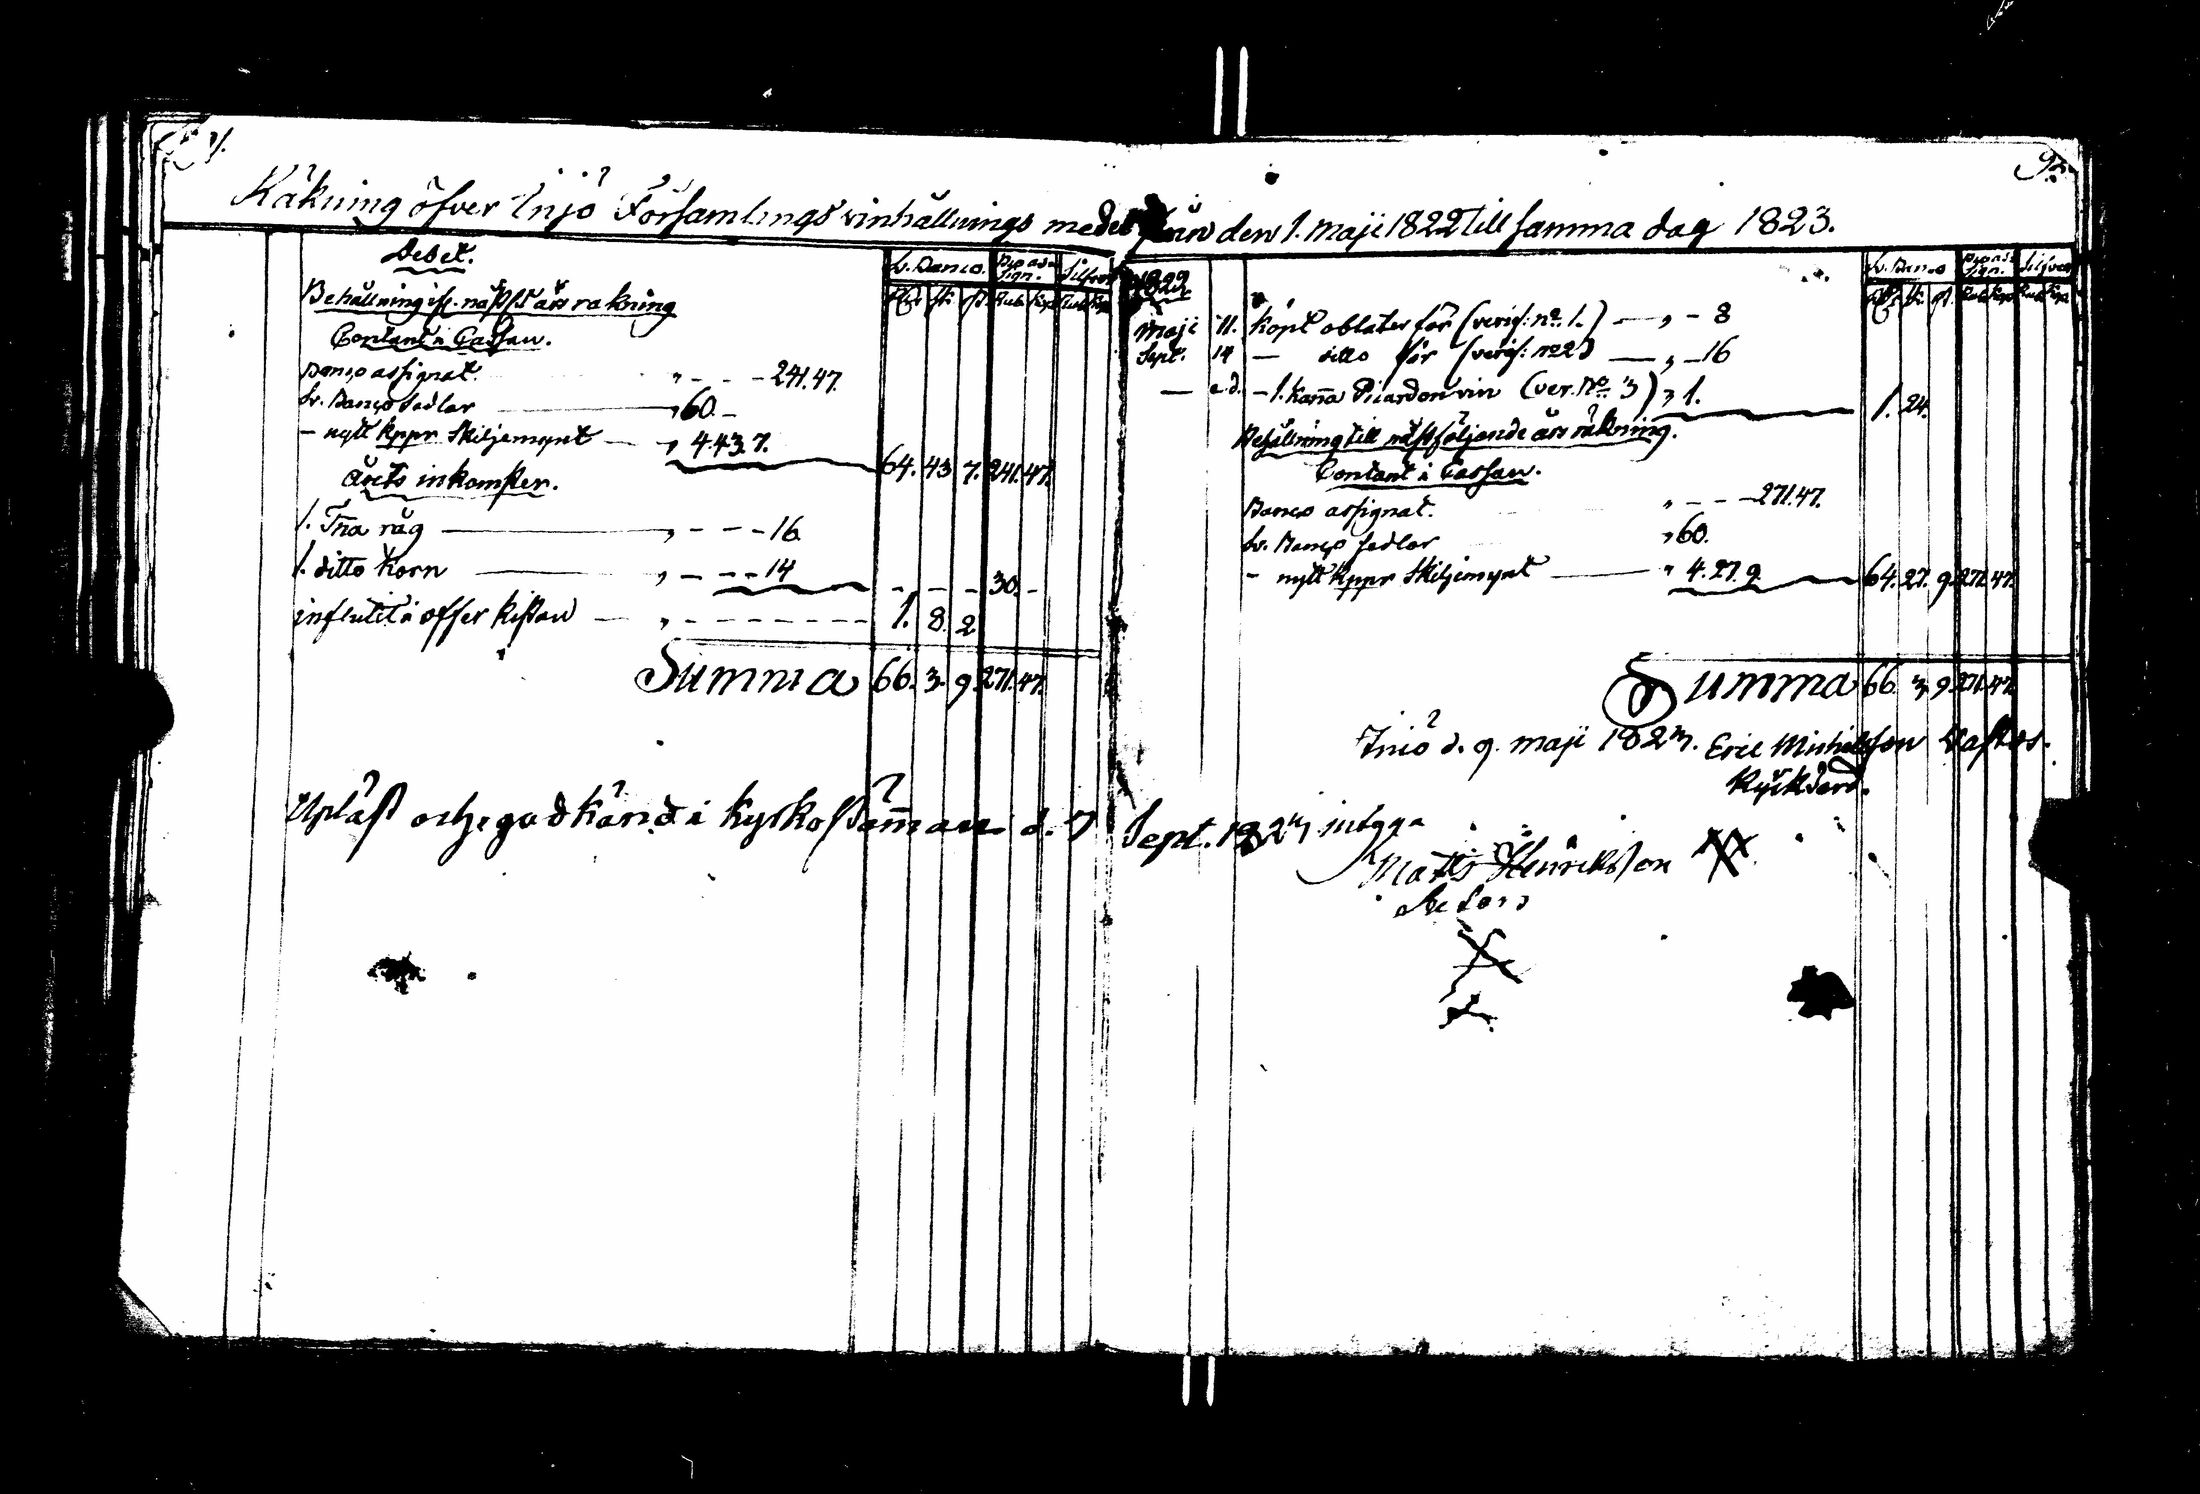 Räkning öfver Iniö Församlings vinhållnings medel från den 1. maji 1822 till samma dag 1823.
Debet.
Sv. Banco. Bco assign. Silfver
Rdr sk. rst. Rub. Kop. Rub. Kop.
Behållning efl. näst fl. års räkning
Contant i Cassan.
Banco assignat. " - - - 241.47.
Sv. Banco sedlar " 60. -
- nytt kppr Skiljemynt " 4.43.7. 64. 43 7. 241. 47.
Årets inkomster.
1. Tna råg " - - - 16.
1. ditto korn " - - - 14 - - - 30. -
influtit i offer kistan " - - - 1. 8. 2
Summa 66. 3. 9. 271. 47.
Upläst och godkänd i kyrkostämman d. 7
92.
Sv. Banco Bco assign. Silfver
Rdr sk. rst. Rub. Kop. Rub. Kop.
1822
Maji 11. köpt oblater för (verif: No 1.) — " - 8
Sept. 14 — ditto för (verif: no 2) — " - 16
— e.d. - 1. kanna Picardon vin (ver. No. 3) " 1. 1. 24.
Behållning till nästföljande års räkning.
Contant i Cassan.
Banco assignat. " - - - 271.47.
Sv. Banco sedlar " 60.
- nytt kppr Skiljemynt " 4. 27. 9 64. 27. 9. 271. 47.
Summa 66 3. 9. 271. 47.
Iniö d. 9. maji 1823. Eric Michelsson
Kyrkvärd.
Sept. 1823 intyga
Matts Henriksson